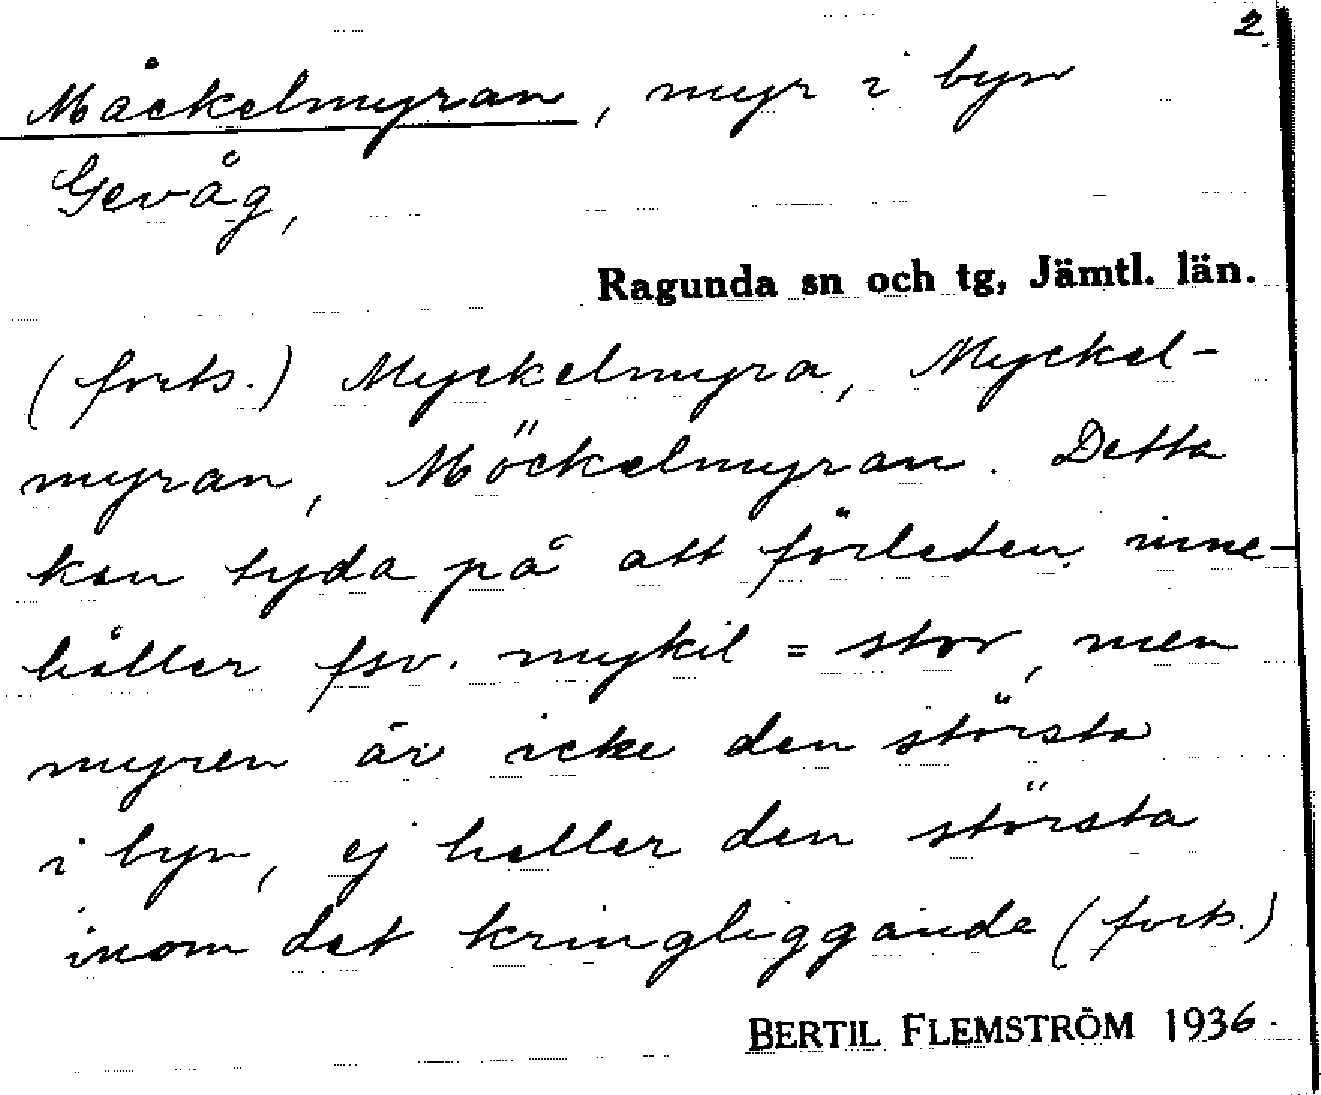 2
Måckelmyran, myr i byn
Gevåg,
Ragunda sn och tg, Jämtl. län.
(forts.) Myckelmyra, Myckel-
myran, Möckelmyran. Detta
kan tyda på att förleden inne-
håller fsv. mykil = stor, men
myren är icke den största
i byn, ej heller den största
inom det kringliggande (forts.)
BERTIL FLEMSTRÖM 1936.